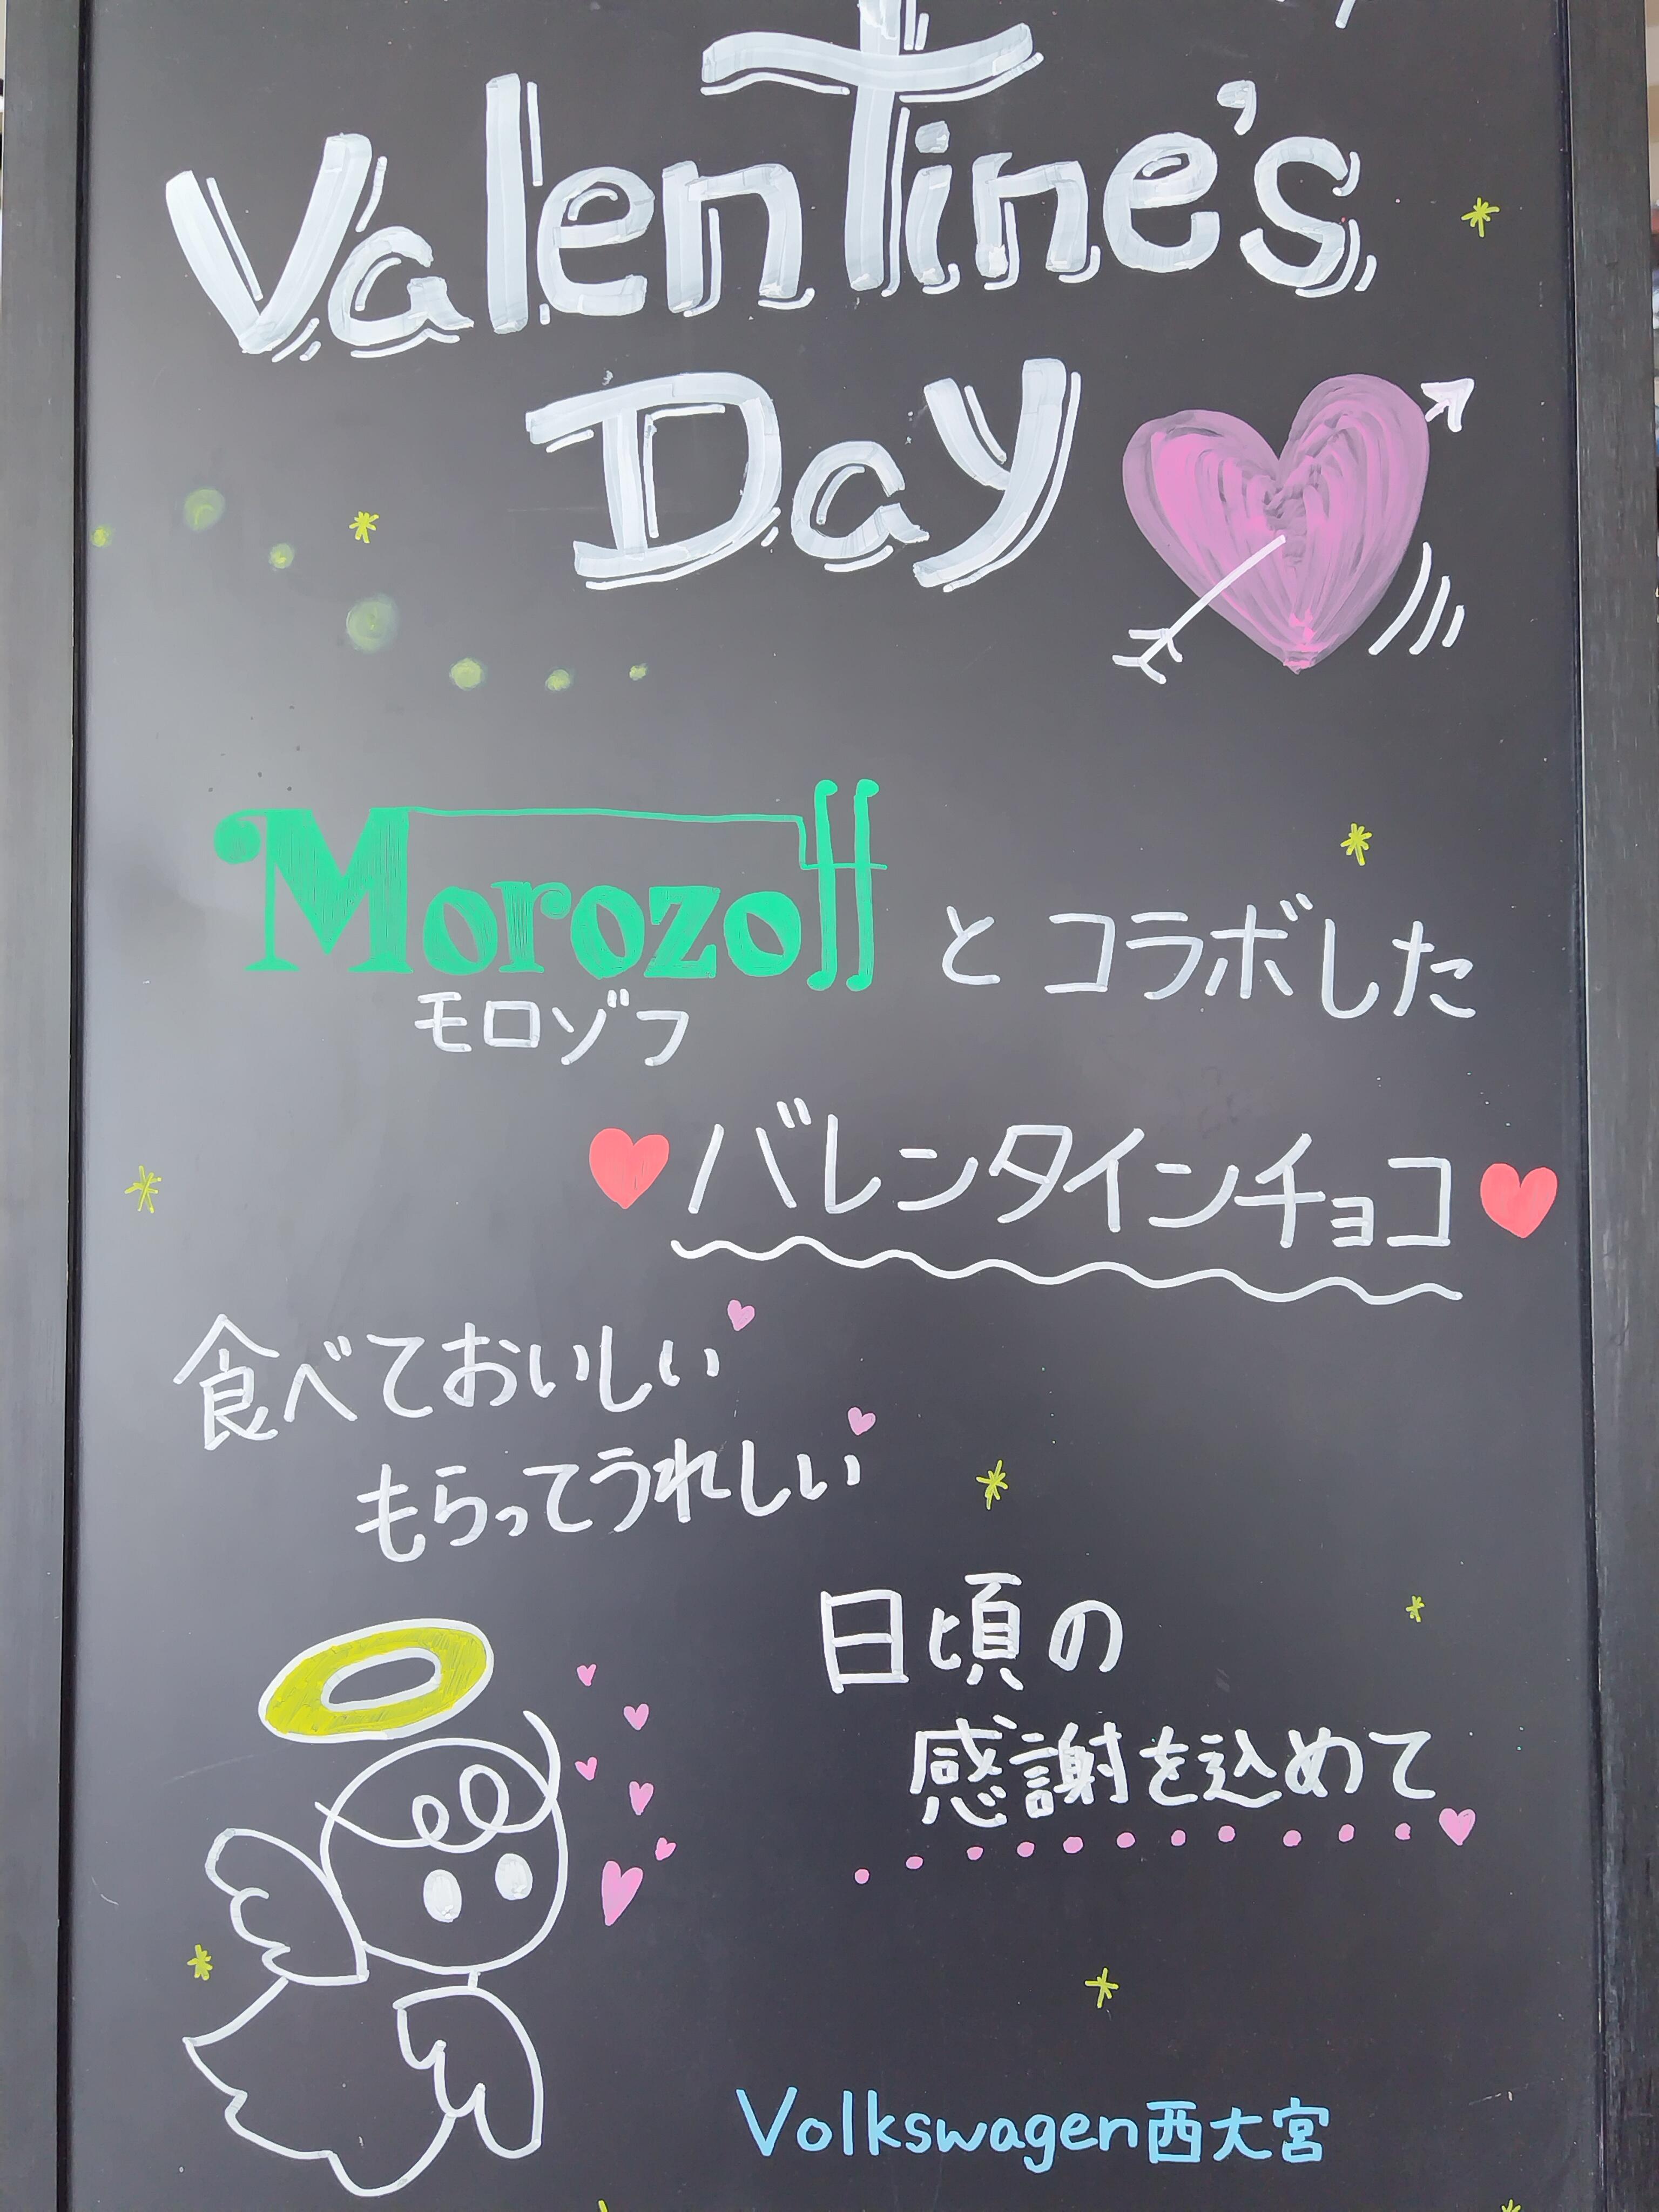 Valentine's
Day
Morozoff とコラボした
モロゾフ
バレンタインチョコ
食べておいしい
もらってうれしい
日頃の
感謝を込めて
Volkswagen西大宮